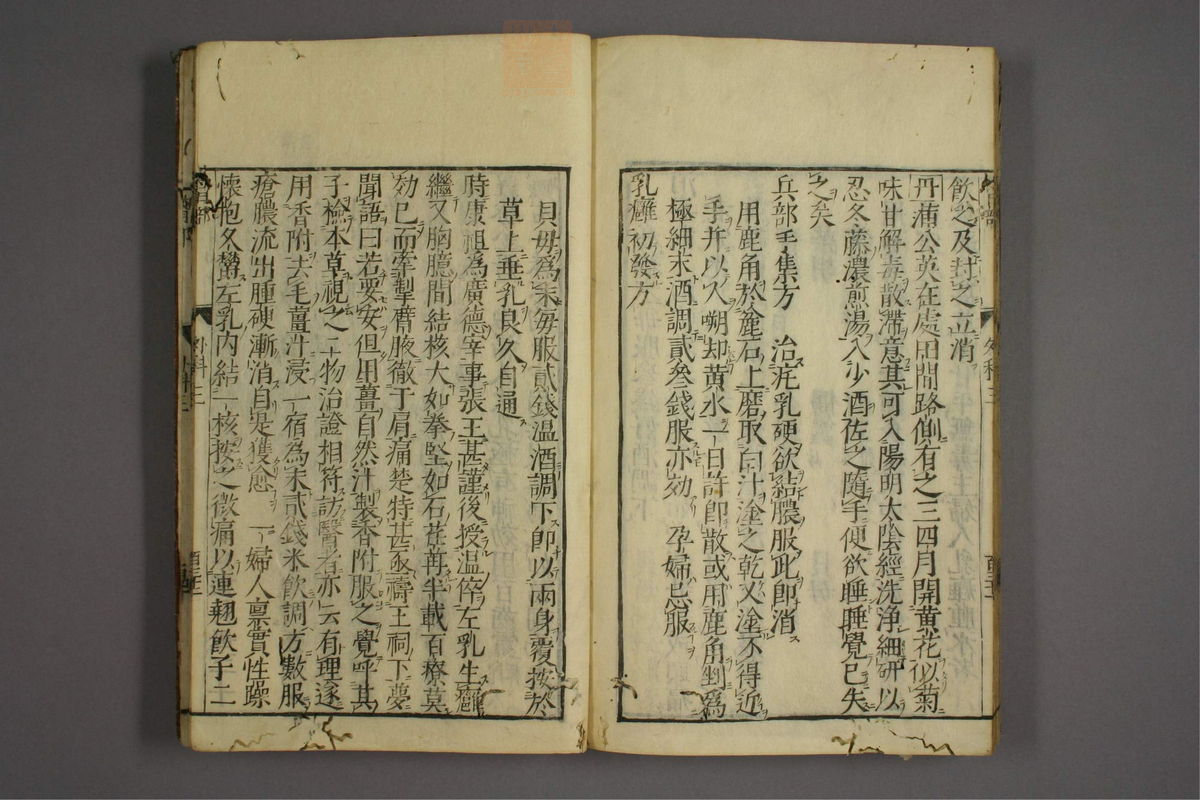 飲之及封之立消
丹蒲公英在處田間路側有之三四月開黃花似菊
味甘解毒散滯意其可入陽明太陰經洗淨細研以
忍冬藤濃煎湯入少酒佐之隨手便欲睡睡覺已失
之矣
兵部手集方 治疣乳硬欲結膿服此即消
用鹿角於麁石上磨取白汁塗之乾又塗不得近
手并以人嗍却黃水一日許即散或用鹿角剉為
極細末酒調貳叁錢服亦効 孕婦忌服
乳癰初發方
貝母為末每服貳錢温酒調下即以兩身覆按於
草上垂乳良久自通
時康祖為廣德宰事張王甚謹後授温倅左乳生癰
繼又胸臆間結核大如拳堅如石荏苒半載百療莫
効已而牽掣臂腋徹于肩痛楚特甚亟禱王祠下夢
聞語曰若要安但用薑自然汁製香附服之覺呼其
子檢本草視之二物治證相符訪醫者亦云有理遂
用香附去毛薑汁浸一宿為末貳錢米飲調方數服
瘡膿流出腫硬漸消自是獲愈 一婦人禀實性躁
懷抱久欝左乳内結一核按之微痛以連翹飲子二